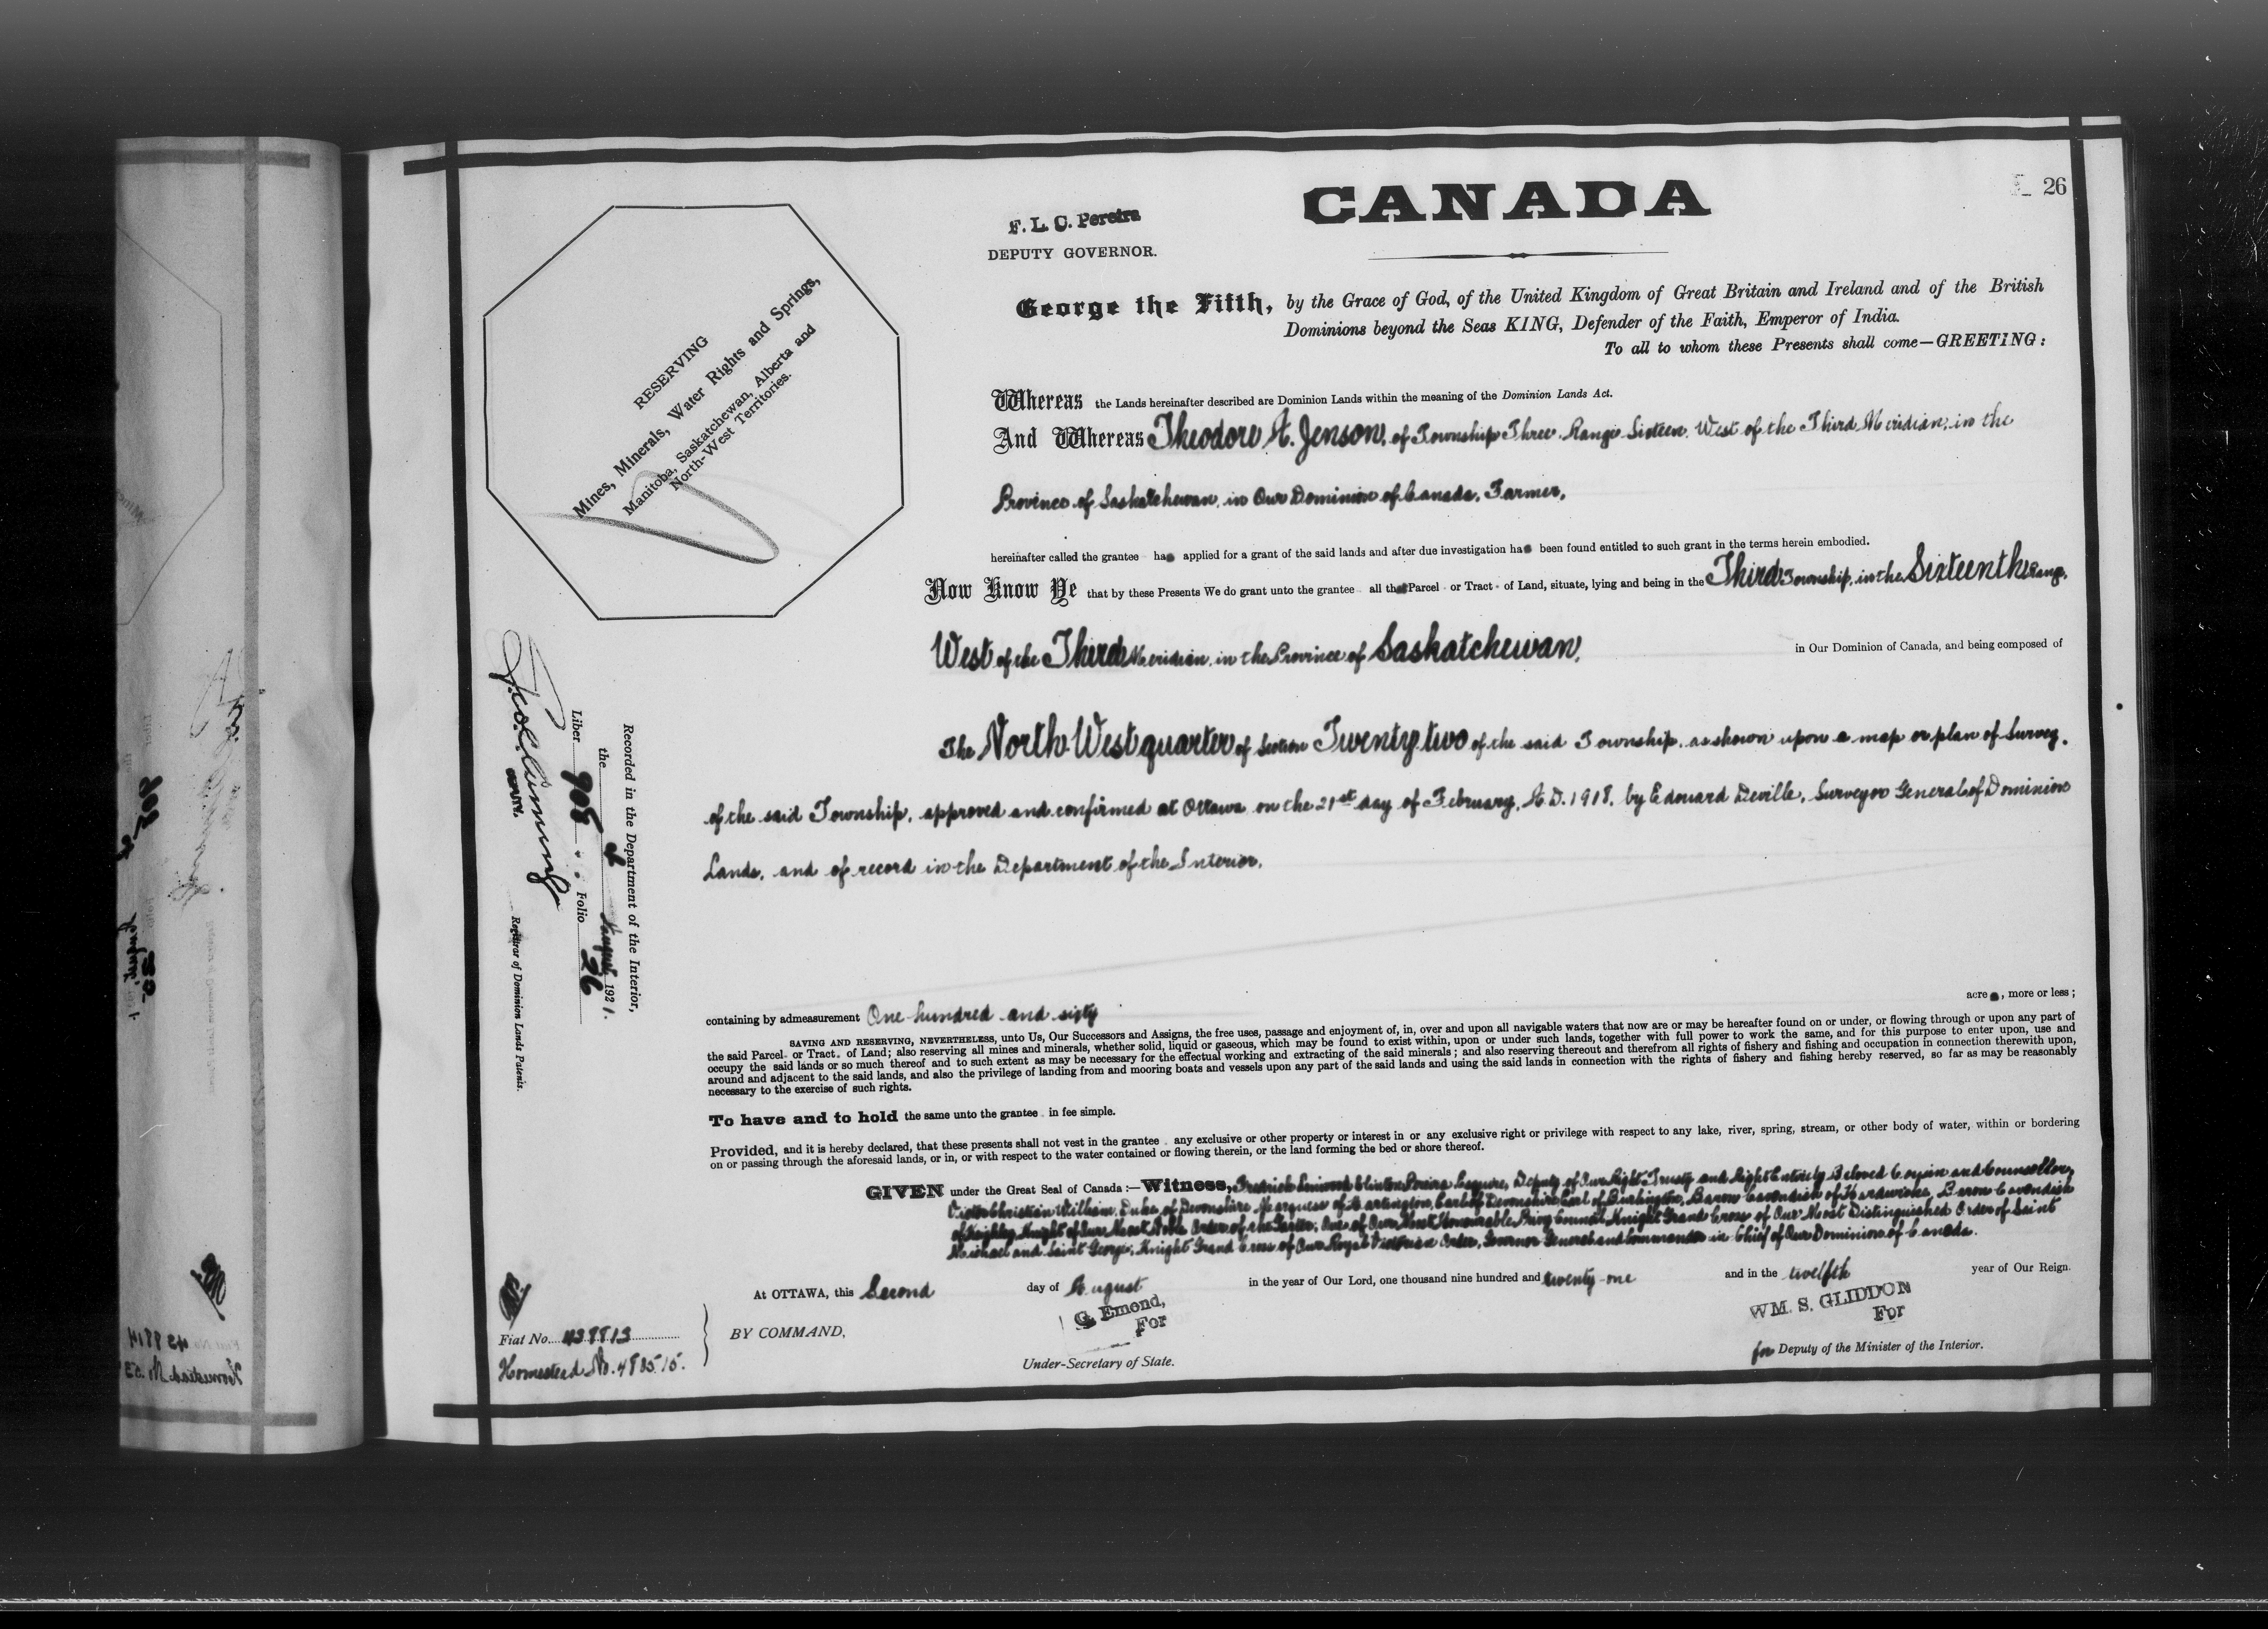 CANADA
26
F. L. C. Pereira
DEPUTY GOVERNOR.
George the Fifth, by the Grace of God, of the United Kingdom of Great Britain and Ireland and of the British
Dominions beyond the Seas KING, Defender of the Faith, Emperor of India.
To all to whom these Presents shall come—GREETING:
RESERVING
Mines, Minerals, Water Rights and Springs,
Manitoba, Saskatchewan, Alberta and
North-West Territories.
Whereas the Lands hereinafter described are Dominion Lands within the meaning of the Dominion Lands Act.
And Whereas Theodore A. Jenson, of Township Three, Range Sixteen, West of the Third Meridian, in the
Province of Saskatchewan, in Our Dominion of Canada, Farmer,
hereinafter called the grantee has applied for a grant of the said lands and after due investigation has been found entitled to such grant in the terms herein embodied.
Now Know Ye that by these Presents We do grant unto the grantee all that Parcel or Tract of Land, situate, lying and being in the Third Township, in the Sixteenth Range,
West of the Third Meridian, in the Province of Saskatchewan, in Our Dominion of Canada, and being composed of
The North West quarter of Section Twenty two of the said Township, as shown upon a map or plan of Survey,
of the said Township, approved and confirmed at Ottawa on the 21st day of February, A.D. 1918, by Edouard Deville, Surveyor General of Dominion
Lands, and of record in the Department of the Interior.
containing by admeasurement One hundred and sixty acres, more or less;
SAVING AND RESERVING, NEVERTHELESS, unto Us, Our Successors and Assigns, the free uses, passage and enjoyment of, in, over and upon all navigable waters that now are or may be hereafter found on or under, or flowing through or upon any part of
the said Parcel or Tract of Land; also reserving all mines and minerals, whether solid, liquid or gaseous, which may be found to exist within, upon or under such lands, together with full power to work the same, and for this purpose to enter upon, use and
occupy the said lands or so much thereof and to such extent as may be necessary for the effectual working and extracting of the said minerals; and also reserving thereout and therefrom all rights of fishery and fishing and occupation in connection therewith upon,
around and adjacent to the said lands, and also the privilege of landing from and mooring boats and vessels upon any part of the said lands and using the said lands in connection with the rights of fishery and fishing hereby reserved, so far as may be reasonably
necessary to the exercise of such rights.
To have and to hold the same unto the grantee in fee simple.
Provided, and it is hereby declared, that these presents shall not vest in the grantee any exclusive or other property or interest in or any exclusive right or privilege with respect to any lake, river, spring, stream, or other body of water, within or bordering
on or passing through the aforesaid lands, or in, or with respect to the water contained or flowing therein, or the land forming the bed or shore thereof.
GIVEN under the Great Seal of Canada:—Witness, Clinton Pereira Esquire, Deputy of Our Right Trusty and Right Entirely Beloved Cousin and Counsellor,
Victor Christian William, Duke of Devonshire, Marquess of Hartington, Earl of Devonshire, Earl of Burlington, Baron Cavendish of Hardwicke, Baron Cavendish
of Keighley, Knight of Our Most Noble Order of the Garter, One of Our Most Honourable Privy Council, Knight Grand Cross of Our Most Distinguished Order of Saint
Michael and Saint George, Knight Grand Cross of Our Royal Victorian Order, Governor General and Commander in Chief of Our Dominion of Canada.
At OTTAWA, this Second day of August in the year of Our Lord, one thousand nine hundred and twenty-one and in the twelfth year of Our Reign.
BY COMMAND,
G. Emond,
For
Under-Secretary of State.
WM. S. GLIDDON
For
for Deputy of the Minister of the Interior.
Recorded in the Department of the Interior,
the 4 August 1921.
Liber 908 Folio 26
DEPUTY. Registrar of Dominion Lands Patents.
Fiat No. 439813
Homestead No. 483515.